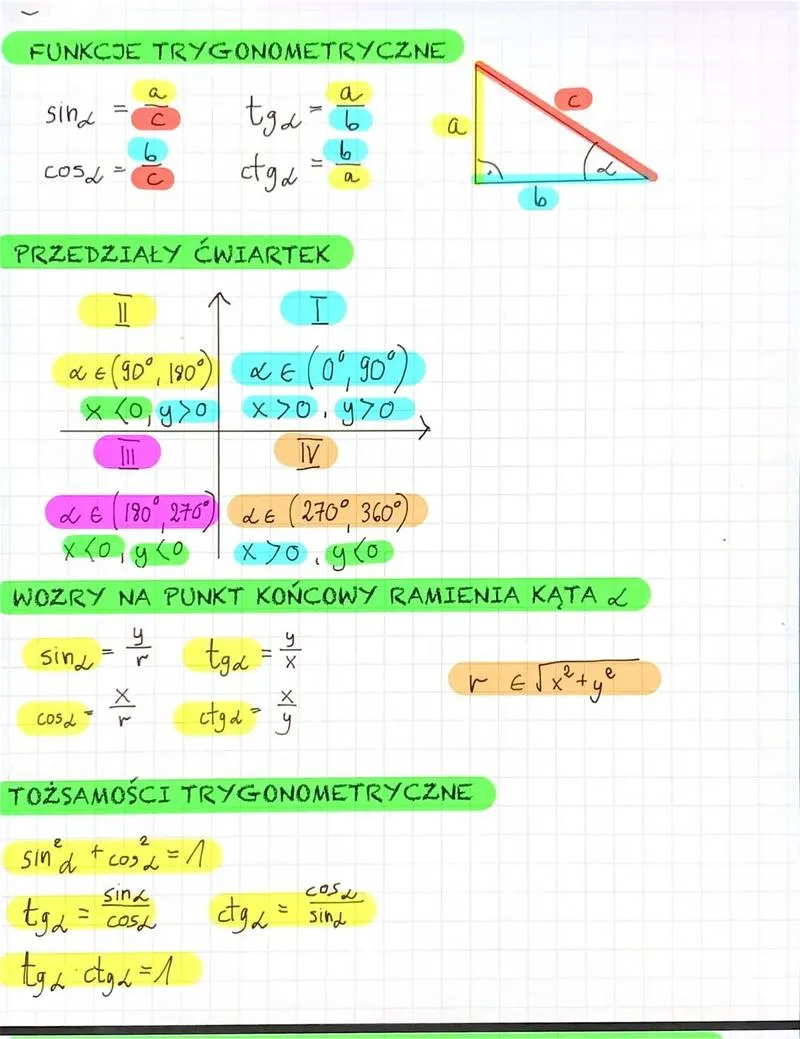 FUNKCJE TRYGONOMETRYCZNE
sinα = a/c tgα = a/b
cosα = b/c ctgα = b/a
a c α b
PRZEDZIAŁY ĆWIARTEK
II I
α ∈ (90°, 180°) α ∈ (0°, 90°)
x <0, y>0 x >0, y >0
III IV
α ∈ (180°, 270°) α ∈ (270°, 360°)
x <0, y <0 x >0, y <0
WOZRY NA PUNKT KOŃCOWY RAMIENIA KĄTA α
sinα = y/r tgα = y/x
r ∈ √x²+y²
cosα = x/r ctgα = x/y
TOŻSAMOŚCI TRYGONOMETRYCZNE
sin²α + cos²α = 1
tgα = sinα/cosα ctgα = cosα/sinα
tgα · ctgα = 1